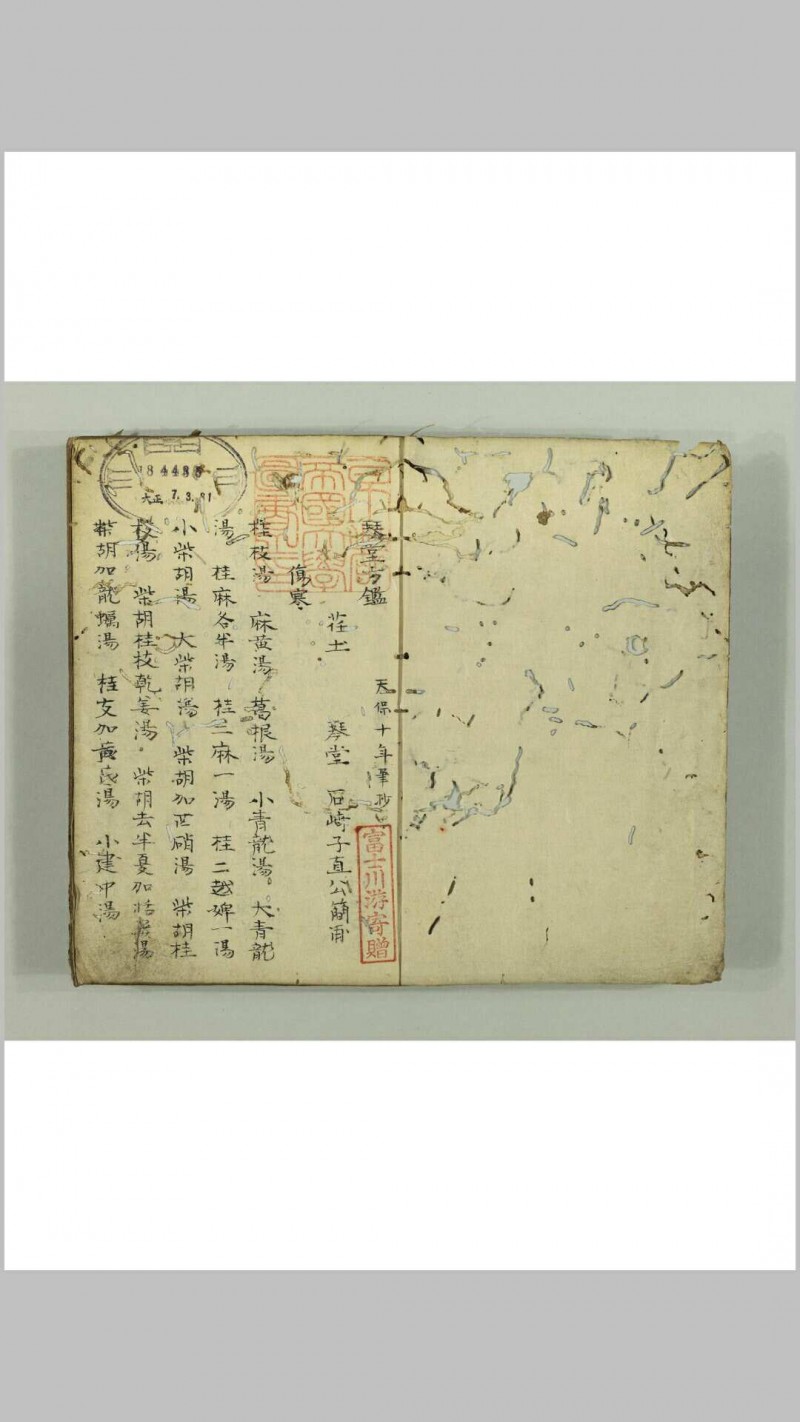 琴堂方鑑
天保十年筆抄
富士川游寄贈
荘士 琴堂 石﨑子直公簡甫
傷寒
桂枝湯 麻黄湯 葛根湯 小青龍湯 大青龍
湯 桂麻各半湯 桂二麻一湯 桂二越婢一湯
小柴胡湯 大柴胡湯 柴胡加芒硝湯 柴胡桂
枝湯 柴胡桂枝乾姜湯 柴胡去半夏加括蔞湯
柴胡加龍蠣湯 桂支加黄芪湯 小建中湯
184486
大正 7.3.31